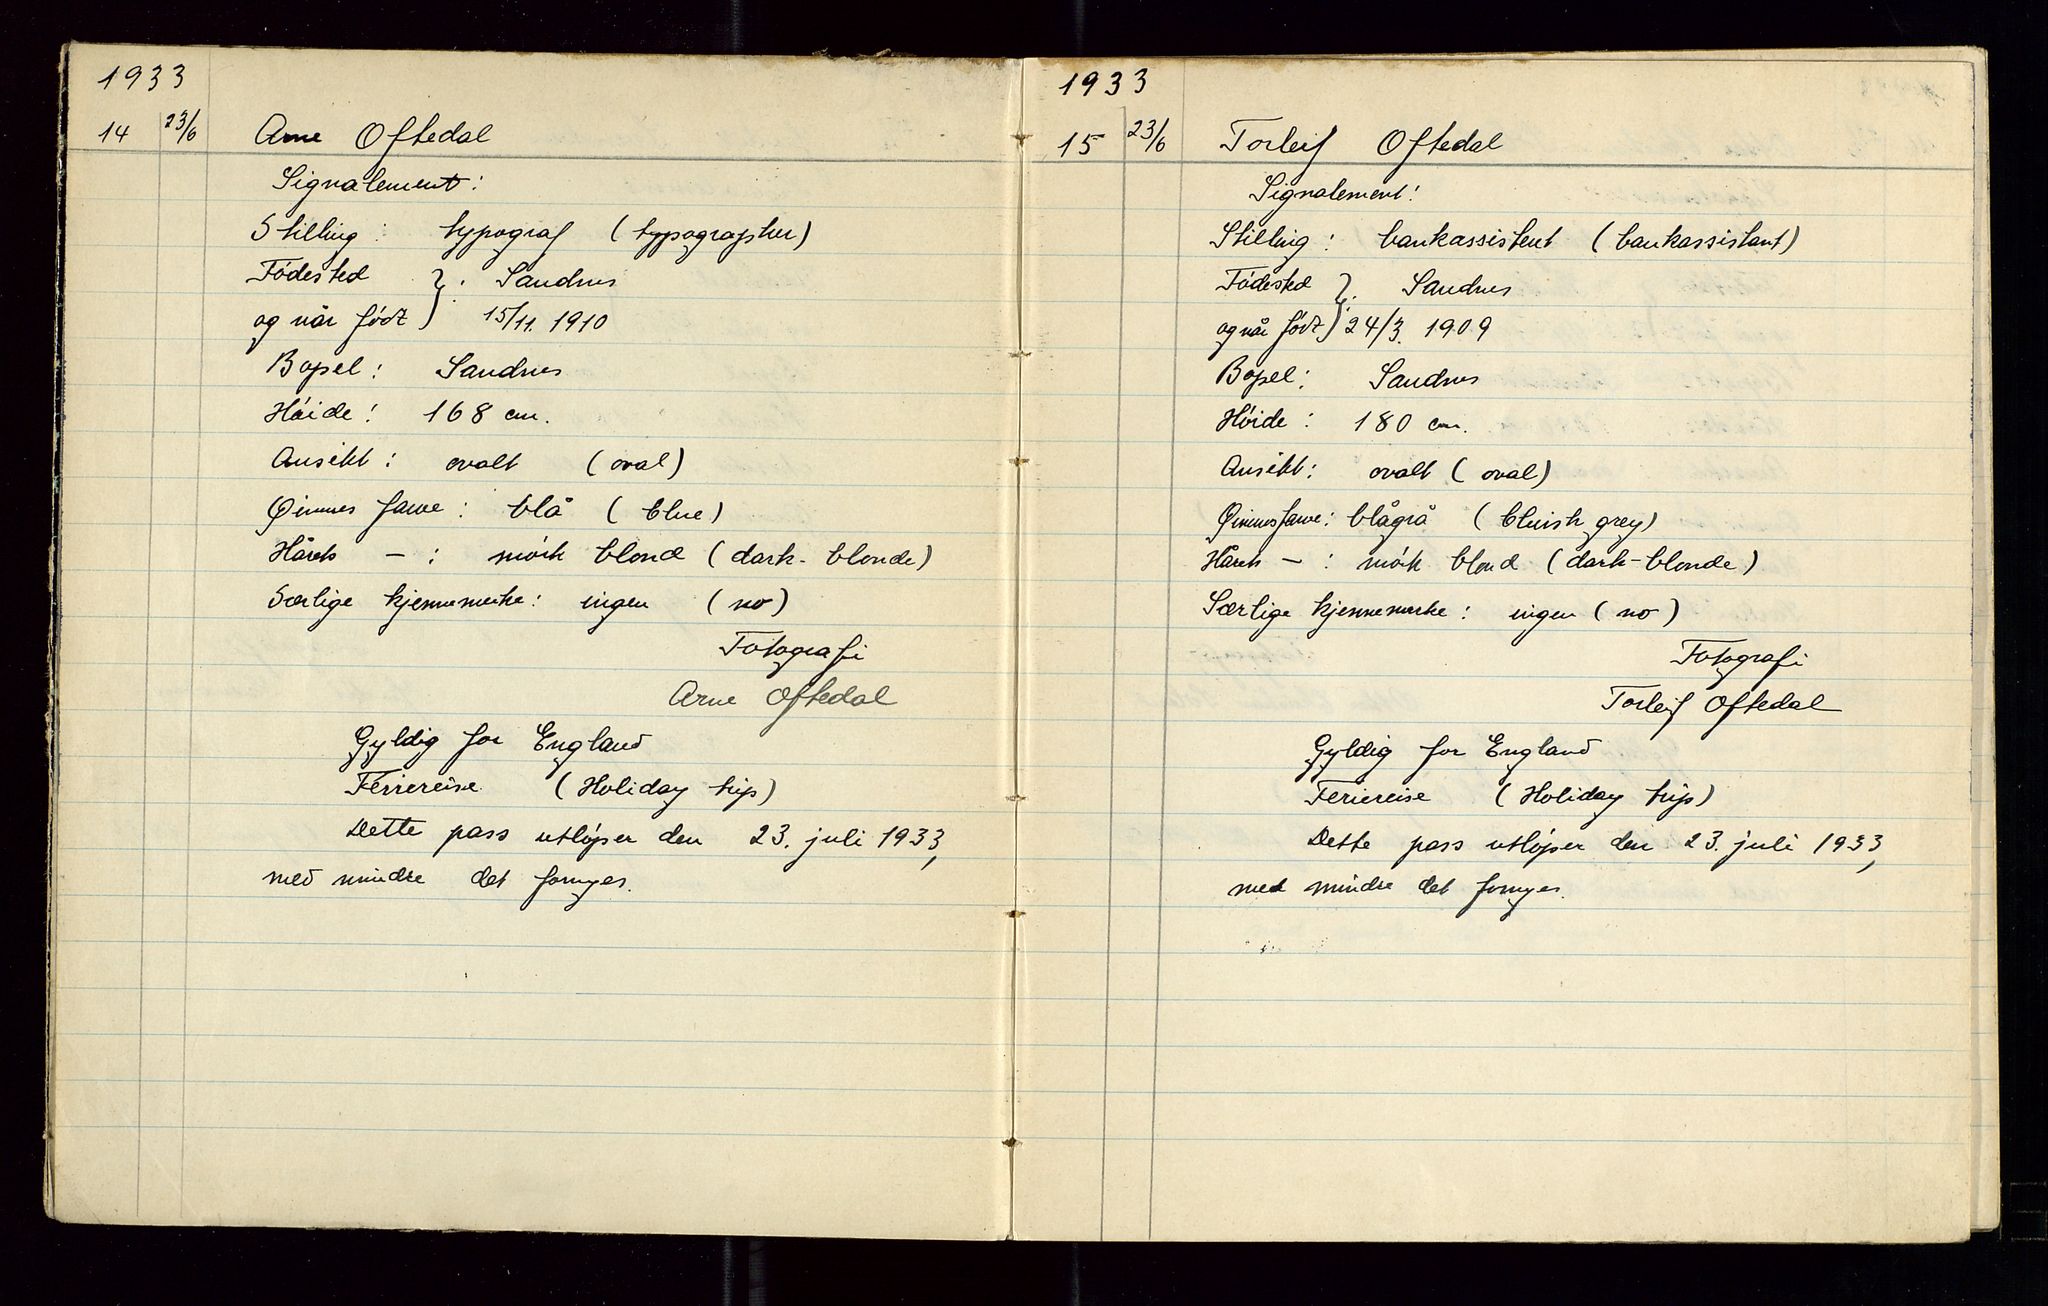 1933
14 23/6 Arne Oftedal
Signalement:
Stilling: typograf (typographer)
Fødested } : Sandnes
og når født } 15/11. 1910
Bopel: Sandnes
Høide: 168 cm.
Ansikt: ovalt (oval)
Øinnes farve: blå (blue)
Hårets — : mørk blond (dark-blonde)
Særlige kjennemerke: ingen (no)
Fotografi
Arne Oftedal
Gyldig for England
Feriereise (Holiday trip)
Dette pass utløper den 23. juli 1933,
med mindre det fornyes.
1933
15 23/6 Torleif Oftedal
Signalement:
Stilling: bankassistent (bankassistant)
Fødested } : Sandnes
og når født } 24/3. 1909
Bopel: Sandnes
Høide: 180 cm.
Ansikt: ovalt (oval)
Øinnes farve: blågrå (bluish grey)
Hårets — : mørk blond (dark-blonde)
Særlige kjennemerke: ingen (no)
Fotografi
Torleif Oftedal
Gyldig for England
Feriereise (Holiday trip)
Dette pass utløper den 23. juli 1933,
med mindre det fornyes.